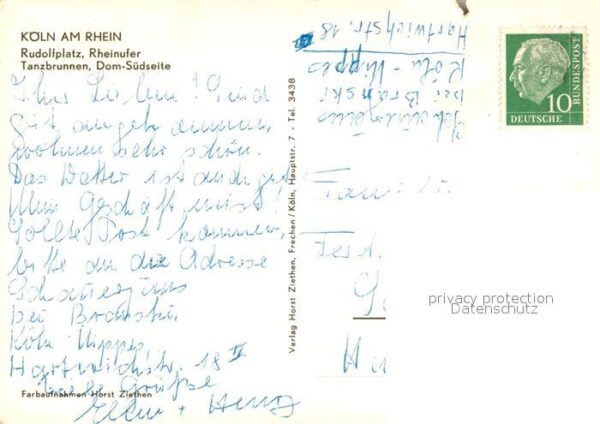 KÖLN AM RHEIN
Rudolfplatz, Rheinufer
Tanzbrunnen, Dom-Südseite
Ihr Lieben! Sind
gut angekommen,
wohnen sehr schön.
Das Wetter ist auch gut
Nur Geschäft mist!
Sollte Post kommen,
bitte an die Adresse
bei Bronski
Köln Nippes,
Hartwichstr. 18 II
viele Grüße
+
Farbaufnahmen Horst Ziethen
Verlag Horst Ziethen, Frechen/Köln, Hauptstr. 7 - Tel. 3438
bei Bronski
Köln-Nippes
Hartwichstr. 18
10
DEUTSCHE
BUNDESPOST
privacy protection
Datenschutz